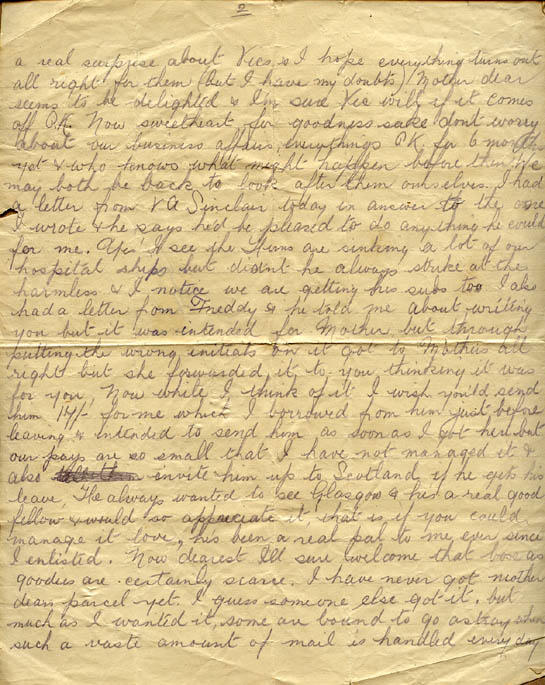 2
a real surprise about Vics, & I hope everything turns out
all right for them (but I have my doubts) Mother dear
seems to be delighted & I'm sure Vic will if it comes
off O.K. Now sweetheart for goodness sake dont worry
about our business affairs, everythings O.K. for 6 months
yet & who knows what might happen before then, we
may both be back to look after them ourselves. I had
a letter from VA Sinclair today in answer to the one
I wrote & he says he'd be pleased to do anything he could
for me. Yes I see the Huns are sinking a lot of our
hospital ships but didnt he always strike at the
harmless & I notice we are getting his subs too I also
had a letter fom Freddy & he told me about writing
you but it was intended for Mother but through
putting the wrong initials on it got to Mothers all
right but she forwarded it to you thinking it was
for you, Now while I think of it I wish you'd send
him /- for me which I borrowed from him just before
leaving & intended to send him as soon as I got here but
our pays are so small that I have not managed it &
also invite him up to Scotland if he gets his
leave, He always wanted to see Glasgow & hes a real good
fellow & would so appreciate it, that is if you could
manage it love, hes been a real pal to me ever since
I enlisted. Now dearest Ill sure welcome that box as
goodies are certainly scarce. I have never got mother
dears parcel yet. I guess someone else got it. but
much as I wanted it, some are bound to go astray when
such a vaste amount of mail is handled every day